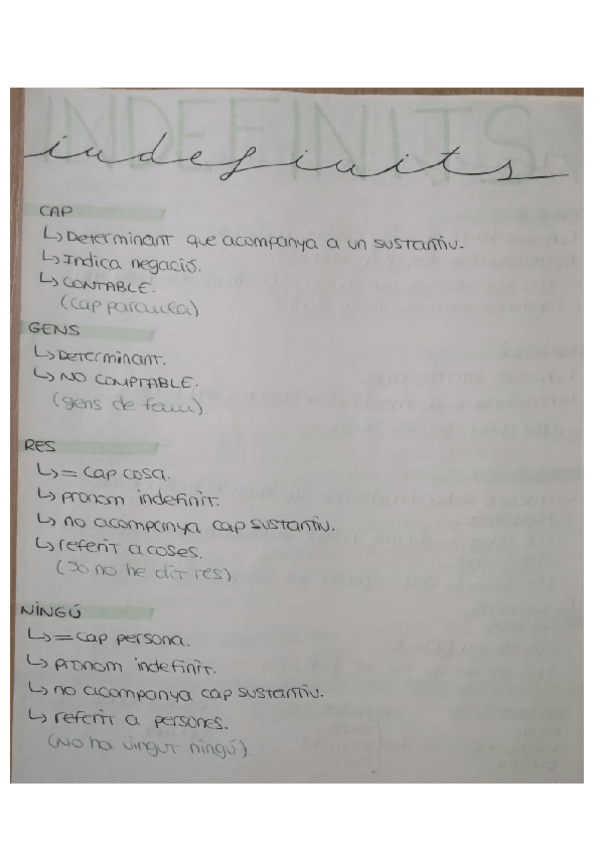 INDEFINITS
indefinits
CAP
↳ Determinant que acompanya a un sustantiu.
↳ Indica negació.
↳ CONTABLE.
(cap paraula)
GENS
↳ Determinant.
↳ NO COMPTABLE.
(gens de fam).
RES
↳ = cap cosa.
↳ pronom indefinit.
↳ no acompanya cap sustantiu.
↳ referit a coses.
(Jo no he dit res).
NINGÚ
↳ = cap persona.
↳ pronom indefinit.
↳ no acompanya cap sustantiu.
↳ referit a persones.
(No ha vingut ningú).